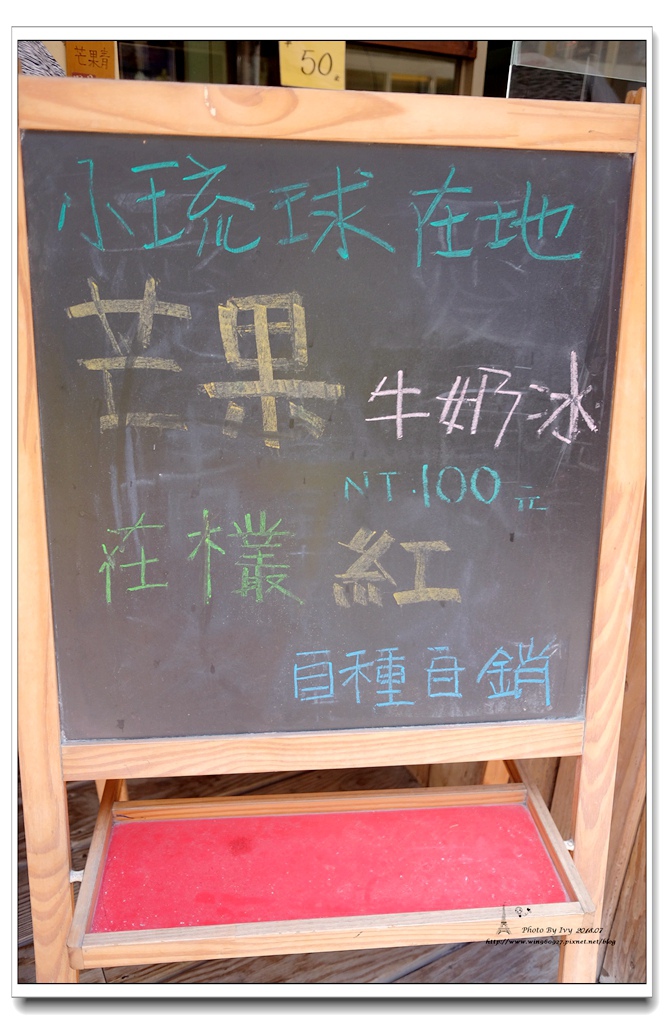 芒果青
50元
小琉球在地
芒果
牛奶冰
NT.100元
在欉紅
自種自銷
Photo By Ivy 2018.07
http://www.wing60927.pixnet.net/blog